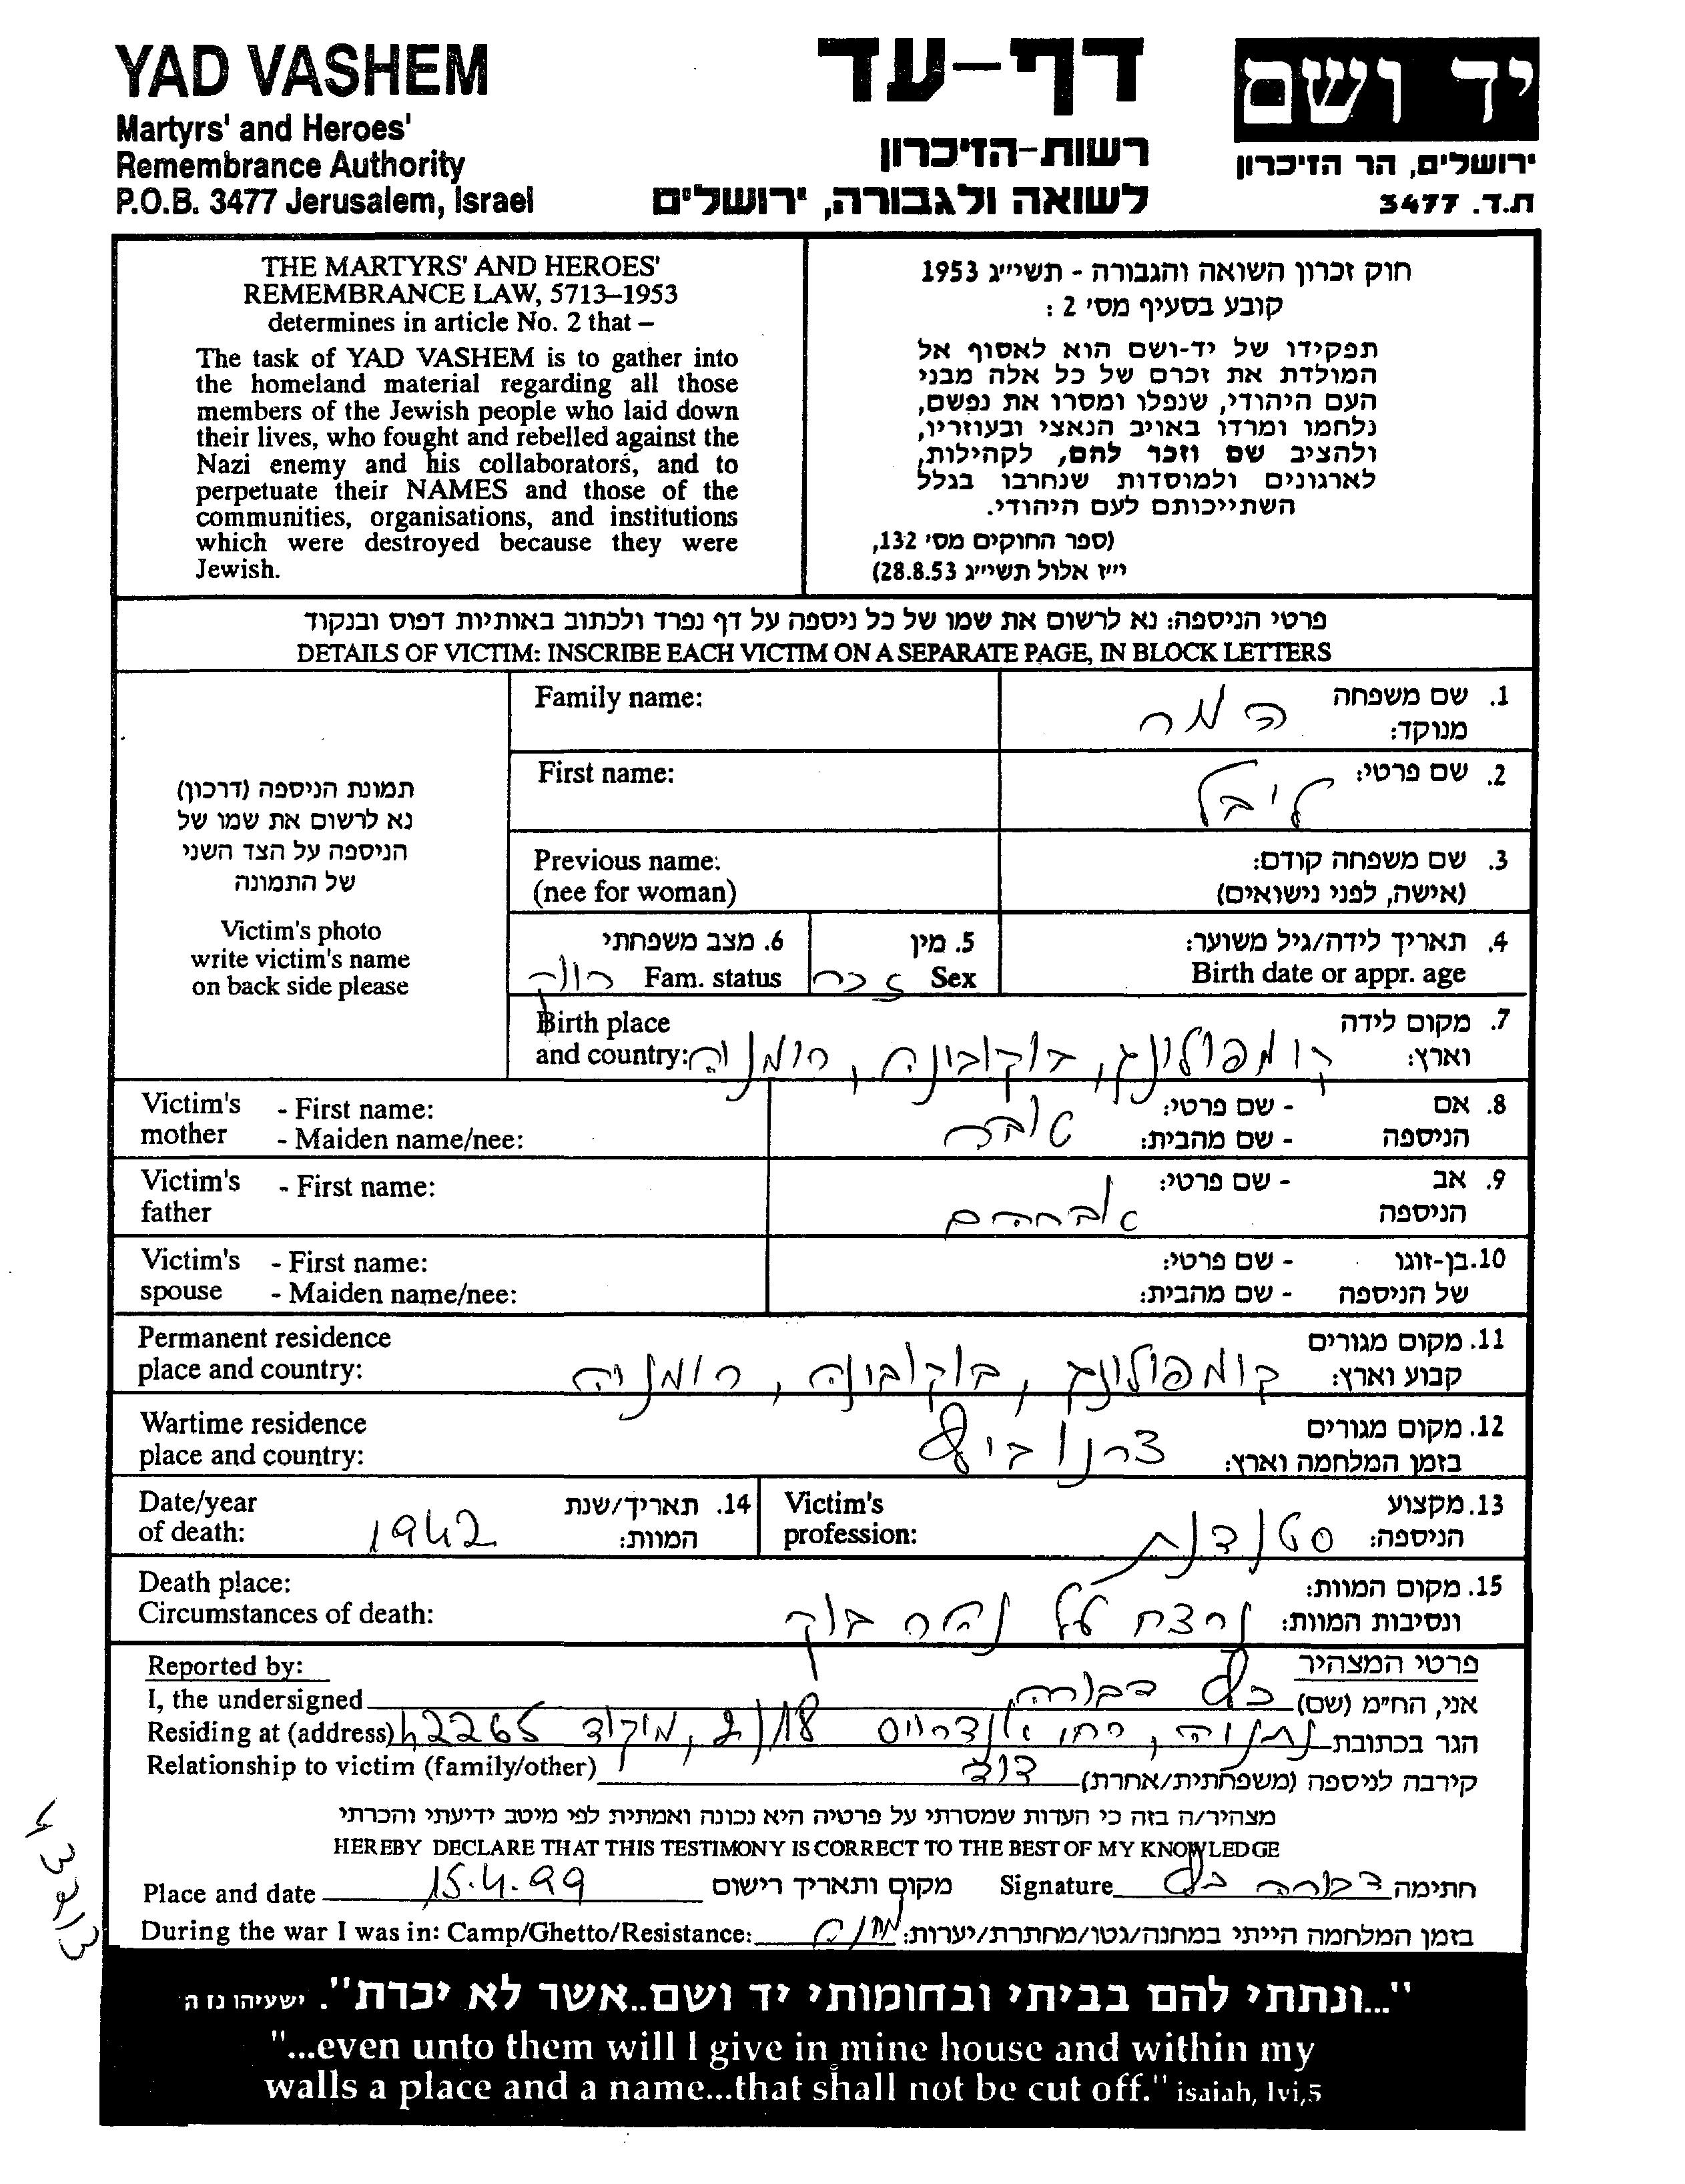 YAD VASHEM
Martyrs' and Heroes'
Remembrance Authority
P.O.B. 3477 Jerusalem, Israel
דף-עד
רשות-הזיכרון
לשואה ולגבורה, ירושלים
יד ושם
ירושלים, הר הזיכרון
ת.ד. 3477
THE MARTYRS' AND HEROES'
REMEMBRANCE LAW, 5713–1953
determines in article No. 2 that –
The task of YAD VASHEM is to gather into
the homeland material regarding all those
members of the Jewish people who laid down
their lives, who fought and rebelled against the
Nazi enemy and his collaborators, and to
perpetuate their NAMES and those of the
communities, organisations, and institutions
which were destroyed because they were
Jewish.
חוק זכרון השואה והגבורה - תשי״ג 1953
קובע בסעיף מס׳ 2 :
תפקידו של יד-ושם הוא לאסוף אל
המולדת את זכרם של כל אלה מבני
העם היהודי, שנפלו ומסרו את נפשם,
נלחמו ומרדו באויב הנאצי ובעוזריו,
ולהציב שם וזכר להם, לקהילות,
לארגונים ולמוסדות שנחרבו בגלל
השתייכותם לעם היהודי.
(ספר החוקים מס׳ 132,
י״ז אלול תשי״ג 28.8.53)
פרטי הניספה: נא לרשום את שמו של כל ניספה על דף נפרד ולכתוב באותיות דפוס ובנקוד
DETAILS OF VICTIM: INSCRIBE EACH VICTIM ON A SEPARATE PAGE, IN BLOCK LETTERS
תמונת הניספה (דרכון)
נא לרשום את שמו של
הניספה על הצד השני
של התמונה
Victim's photo
write victim's name
on back side please
Family name:
1. שם משפחה
מנוקד: המר
First name:
2. שם פרטי: לייבל
Previous name:
(nee for woman)
3. שם משפחה קודם:
(אישה, לפני נישואים)
6. מצב משפחתי
Fam. status רווק
5. מין
Sex זכר
4. תאריך לידה/גיל משוער:
Birth date or appr. age
Birth place
and country:
7. מקום לידה
וארץ: קומפולונג, בוקובינה, רומניה
Victim's mother - First name:
- Maiden name/nee:
8. אם הניספה - שם פרטי: טובה
- שם מהבית:
Victim's father - First name:
9. אב הניספה - שם פרטי: אברהם
Victim's spouse - First name:
- Maiden name/nee:
10. בן-זוגו של הניספה - שם פרטי:
- שם מהבית:
Permanent residence
place and country:
11. מקום מגורים
קבוע וארץ: קומפולונג, בוקובינה, רומניה
Wartime residence
place and country:
12. מקום מגורים
בזמן המלחמה וארץ: צרנוביץ
Date/year
of death:
14. תאריך/שנת
המוות: 1942
Victim's
profession:
13. מקצוע
הניספה: סטודנט
Death place:
Circumstances of death:
15. מקום המוות:
ונסיבות המוות: נרצח על נהר בוק
Reported by:
פרטי המצהיר
I, the undersigned
אני, הח״מ (שם) דבורה
Residing at (address)
הגר בכתובת נתניה, רח' 2/18, מיקוד 42265
Relationship to victim (family/other)
קירבה לניספה (משפחתית/אחרת) דוד
מצהיר/ה בזה כי העדות שמסרתי על פרטיה היא נכונה ואמתית לפי מיטב ידיעתי והכרתי
HEREBY DECLARE THAT THIS TESTIMONY IS CORRECT TO THE BEST OF MY KNOWLEDGE
Place and date 15.4.99 מקום ותאריך רישום
Signature דבורה חתימה
During the war I was in: Camp/Ghetto/Resistance:
בזמן המלחמה הייתי במחנה/גטו/מחתרת/יערות: מחנה
"...ונתתי להם בביתי ובחומותי יד ושם..אשר לא יכרת". ישעיהו נו ה
"...even unto them will I give in mine house and within my
walls a place and a name...that shall not be cut off." isaiah, lvi,5